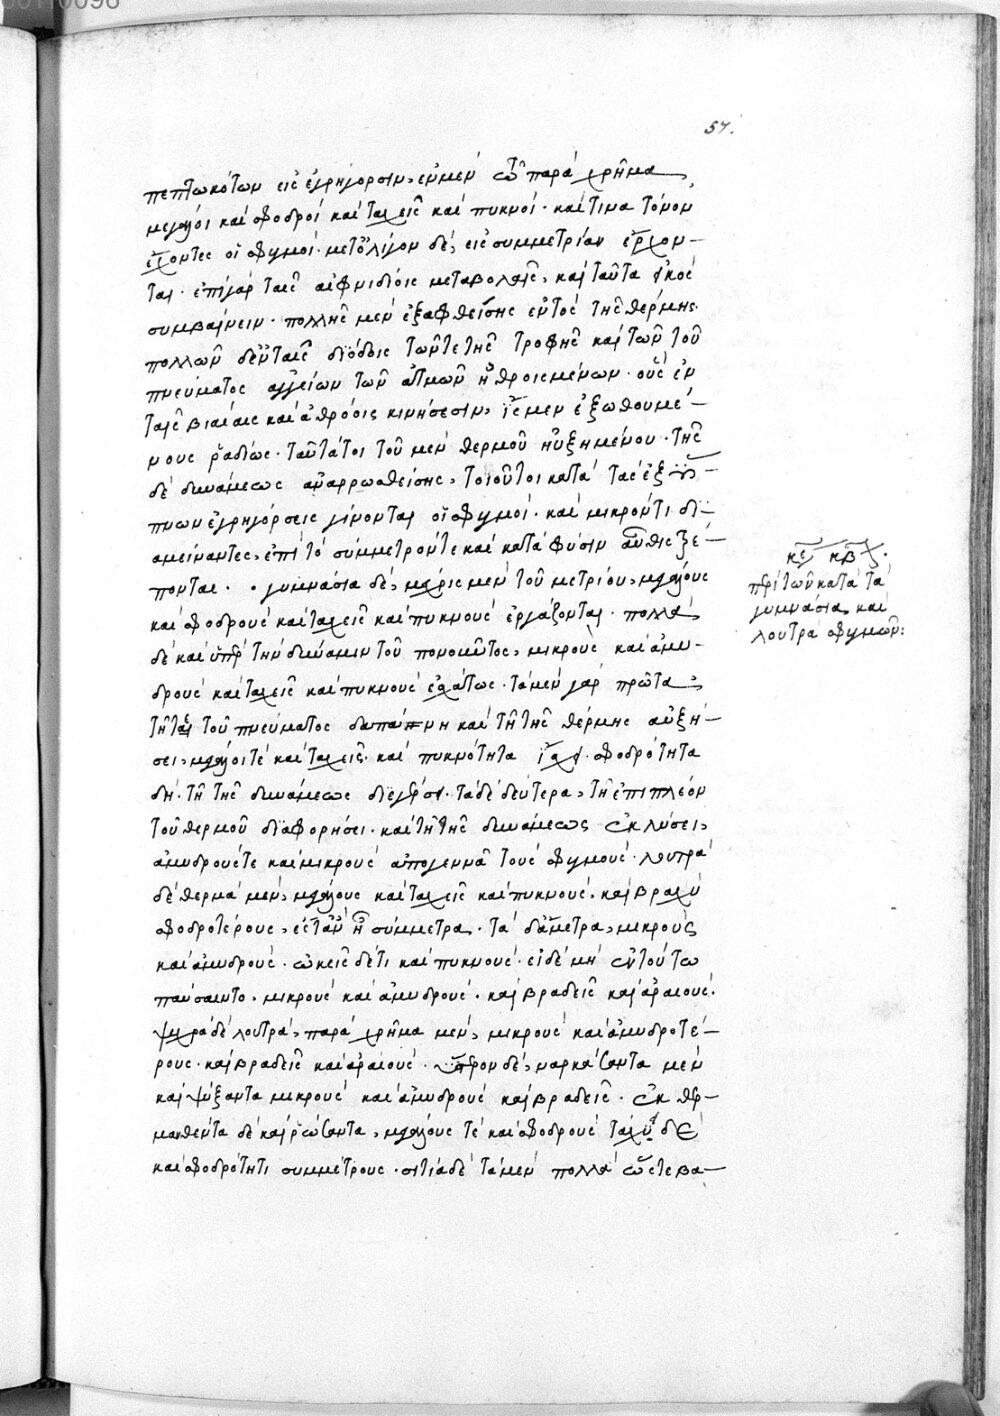 57.
πεπτωκότων εἰς ἐγρήγορσιν, ἐν μὲν τῷ παραχρῆμα
μεγάλοι καὶ σφοδροὶ καὶ ταχεῖς καὶ πυκνοί· καί τινα τόνον
ἔχοντες οἱ σφυγμοί· μετ' ὀλίγον δὲ, εἰς συμμετρίαν ἔρχον-
ται· ἐπὶ γὰρ ταῖς αἰφνιδίοις μεταβολαῖς, καὶ ταῦτα εἰκὸς
συμβαίνειν· πολλῆς μὲν ἐξαφθείσης ἐντὸς τῆς θέρμης·
πολλῶν δ' ἐν ταῖς διόδοις τῶν τε τῆς τροφῆς καὶ τῶν τοῦ
πνεύματος ἀγγείων τῶν ἀτμῶν ἠθροισμένων· οὓς ἐν
ταῖς βιαίαις καὶ ἀθρόοις κινήσεσιν, ἴσμεν ἐξωθουμέ-
νους ῥαδίως· ταῦτά τοι τοῦ μὲν θερμοῦ ηὐξημένου· τῆς
δὲ δυνάμεως ἀναρρωσθείσης, τοιοῦτοι κατὰ τὰς ἐξ ὕ-
πνων ἐγρηγόρσεις γίνονται οἱ σφυγμοί· καὶ μικρόν τι δι-
αμείναντες, ἐπὶ τὸ σύμμετρόν τε καὶ κατὰ φύσιν αὖθις τρέ-
πονται· γυμνάσια δὲ, μέχρις μὲν τοῦ μετρίου, μεγάλους
καὶ σφοδροὺς καὶ ταχεῖς καὶ πυκνοὺς ἐργάζονται· πολλὰ
δὲ καὶ ὑπὲρ τὴν δύναμιν τοῦ πονοῦντος, μικροὺς καὶ ἀμυ-
δροὺς καὶ ταχεῖς καὶ πυκνοὺς ἐσχάτως· τὰ μὲν γὰρ πρῶτα,
τῇ τε τοῦ πνεύματος δαπάνῃ καὶ τῇ τῆς θέρμης αὐξή-
σει, μεγάλοι τὲ καὶ ταχεῖς· καὶ πυκνότητα ἴσχει· σφοδρότητα
δὴ· τῇ τῆς δυνάμεως διεγέρσει· τὰ δὲ δεύτερα, τῇ ἐπιπλέον
τοῦ θερμοῦ διαφορήσει· καὶ τῇ τῆς δυνάμεως ἐκλύσει,
ἀμυδρούς τε καὶ μικροὺς ἀπογεννᾷ τοὺς σφυγμούς· λουτρὰ
δὲ θερμὰ μὲν, μεγάλους καὶ ταχεῖς καὶ πυκνοὺς· καὶ βραχὺ
σφοδροτέρους, ἔς τ' ἂν ᾖ σύμμετρα· τὰ δ' ἄμετρα, μικροὺς
καὶ ἀμυδροὺς· ὠκεῖς δέ τι καὶ πυκνούς· εἰ δὲ μὴ ἐν τούτω
παύσαιντο, μικροὺς καὶ ἀμυδροὺς· καὶ βραδεῖς καὶ ἀραιούς·
ψυχρὰ δὲ λουτρὰ, παραχρῆμα μὲν, μικροὺς καὶ ἀμυδροτέ-
ρους· καὶ βραδεῖς καὶ ἀραιούς· ὕστερον δὲ, ναρκώσαντα μὲν
καὶ ψύξαντα μικροὺς καὶ ἀμυδροὺς καὶ βραδεῖς· ἐκθερ-
μανθέντα δὲ καὶ ῥώσαντα, μεγάλους τὲ καὶ σφοδροὺς
καὶ σφοδρότητι συμμέτρους· σιτία δὲ τὰ μὲν πολλὰ ὥστε βα-
περὶ τῶν κατὰ τὰ
γυμνάσια, καὶ
λουτρὰ σφυγμῶν: